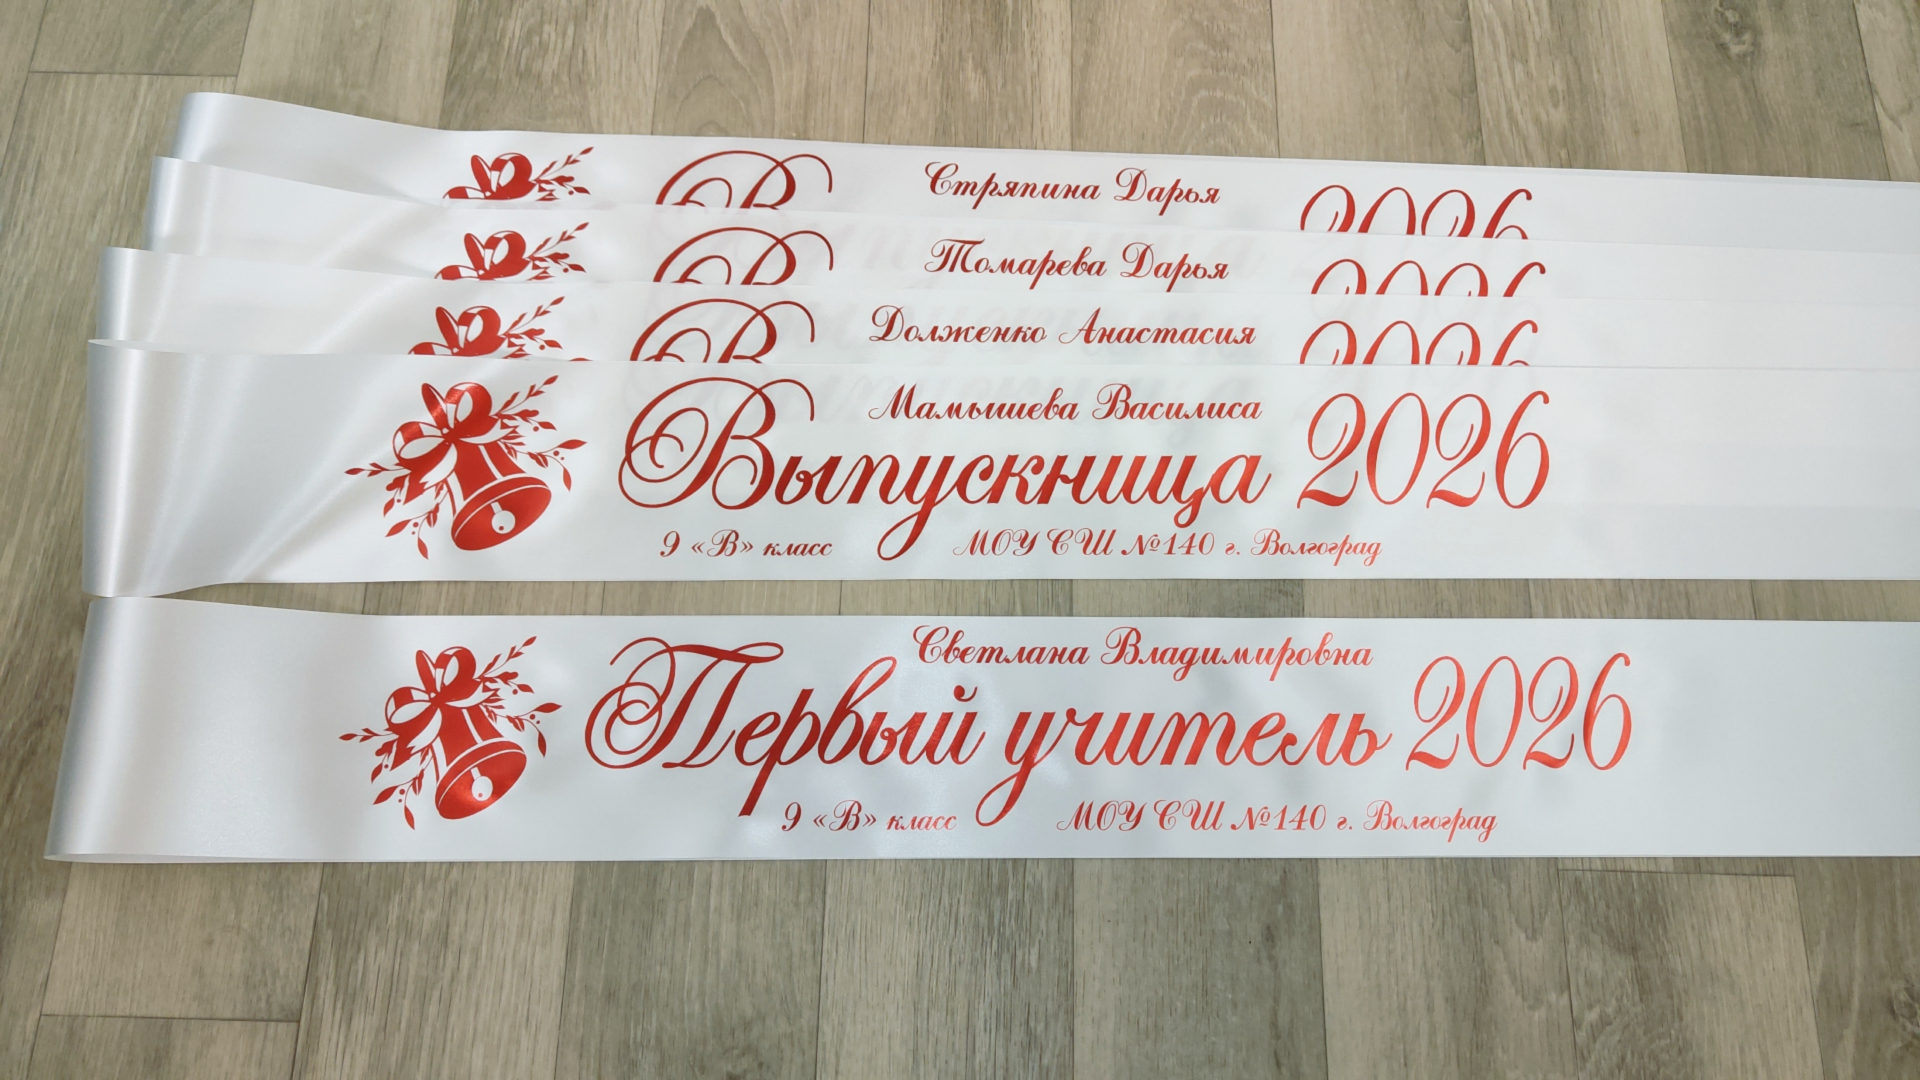 Стряпина Дарья
В 2026
Томарева Дарья
В 2026
Долженко Анастасия
В 2026
Мамышева Василиса
Выпускница 2026
9 «В» класс МОУ СШ №140 г. Волгоград
Светлана Владимировна
Первый учитель 2026
9 «В» класс МОУ СШ №140 г. Волгоград